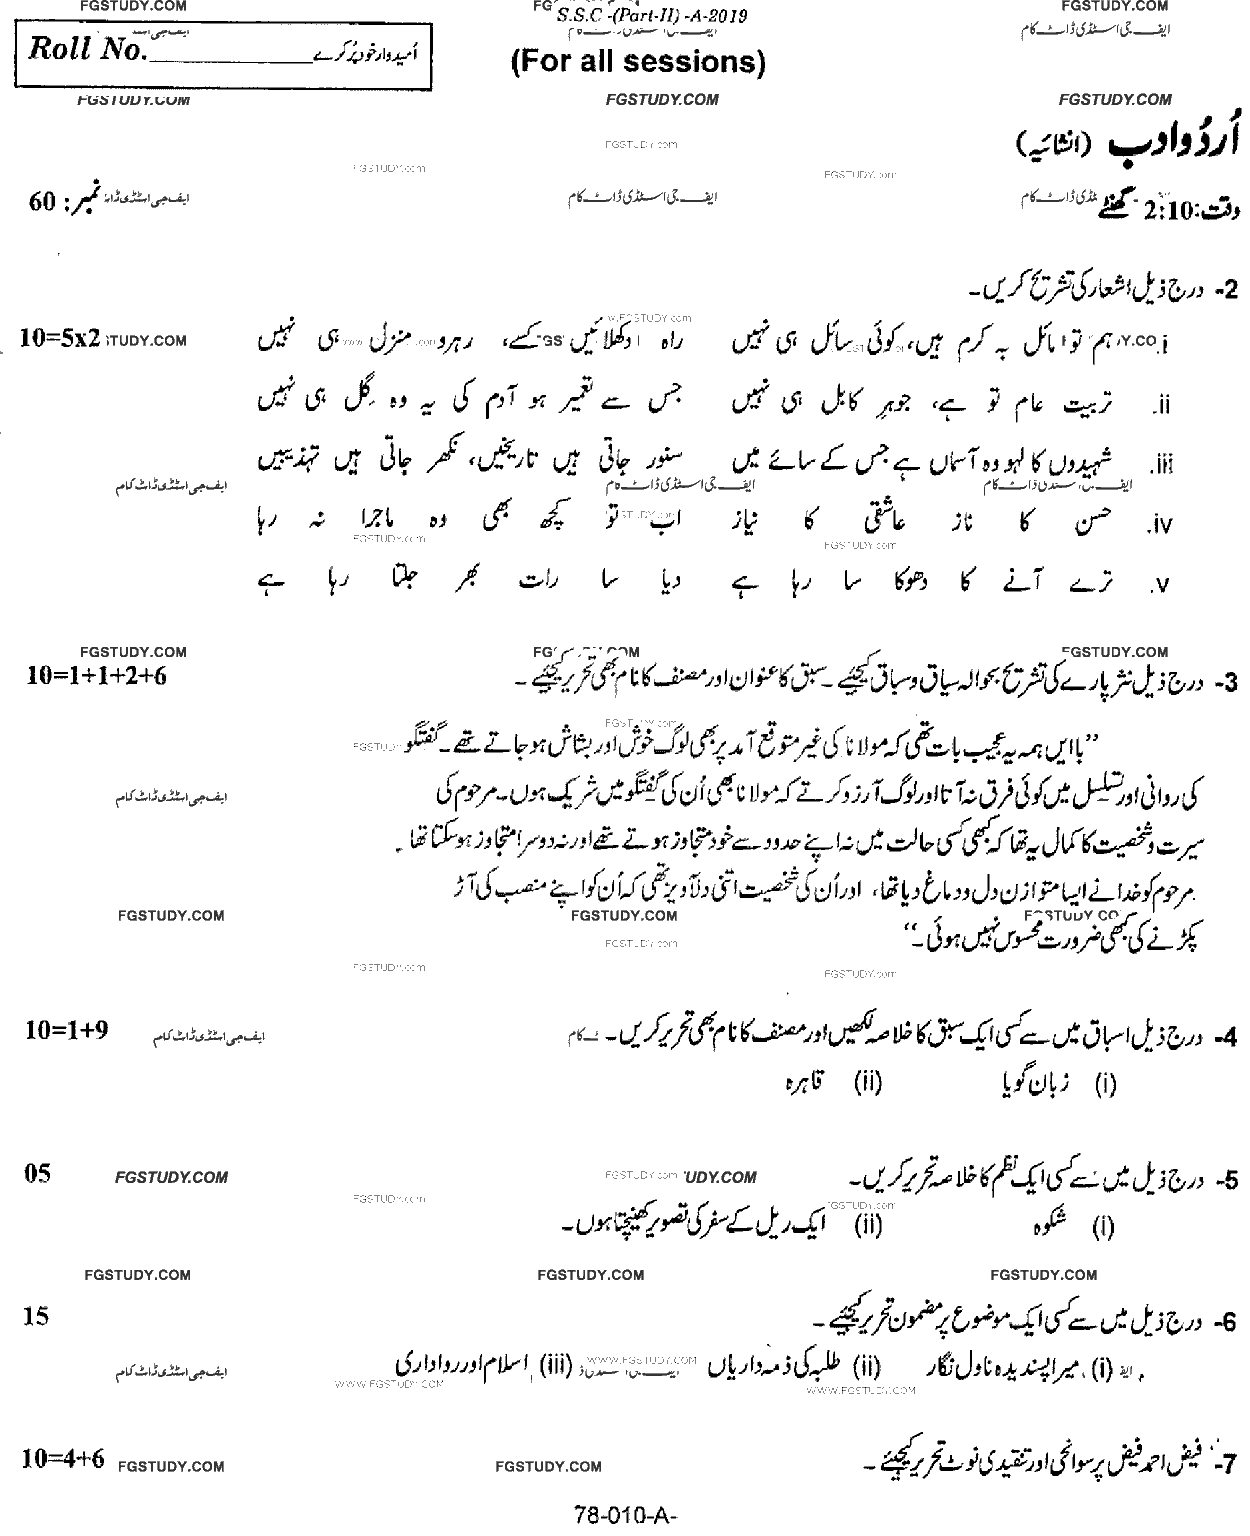 FGSTUDY.COM S.S.C -(Part-II) -A-2019 FGSTUDY.COM
Roll No.____________ اُمیدوار خود پُر کرے
(For all sessions)
ایف جی اسٹڈی ڈاٹ کام
FGSTUDY.COM FGSTUDY.COM FGSTUDY.COM
اُردُو ادب (انشائیہ)
FGSTUDY.com FGSTUDY.com FGSTUDY.com
وقت:2:10 گھنٹے ایف جی اسٹڈی ڈاٹ کام نمبر: 60
2- درج ذیل اشعار کی تشریح کریں۔
10=5x2
i. ہم تو مائل بہ کرم ہیں، کوئی سائل ہی نہیں راہ دکھلائیں کسے، رہرو منزل ہی نہیں
ii. تربیت عام تو ہے، جوہرِ کابل ہی نہیں جس سے تعمیر ہو آدم کی یہ وہ گِل ہی نہیں
iii. شہیدوں کا لہو وہ آسماں ہے جس کے سائے میں سنور جاتی ہیں تاریخیں، نکھر جاتی ہیں تہذیبیں
ایف جی اسٹڈی ڈاٹ کام ایف جی اسٹڈی ڈاٹ کام
iv. حسن کا ناز عاشقی کا نیاز اب تو کچھ بھی وہ ماجرا نہ رہا
FGSTUDY.com FGSTUDY.com
v. ترے آنے کا دھوکا سا رہا ہے دیا سا رات بھر جلتا رہا ہے
FGSTUDY.COM FGSTUDY.COM
3- درج ذیل نثر پارے کی تشریح بحوالہ سیاق و سباق کیجئے۔ سبق کا عنوان اور مصنف کا نام بھی تحریر کیجئے۔ 10=1+1+2+6
"بایں ہمہ یہ عجیب بات تھی کہ مولانا کی غیر متوقع آمد پر بھی لوگ خوش اور بشاش ہو جاتے تھے۔ گفتگو
کی روانی اور تسلسل میں کوئی فرق نہ آتا اور لوگ آرزو کرتے کہ مولانا بھی اُن کی گفتگو میں شریک ہوں۔ مرحوم کی
سیرت و شخصیت کا کمال یہ تھا کہ کبھی کسی حالت میں نہ اپنے حدود سے خود متجاوز ہوتے تھے اور نہ دوسرا متجاوز ہو سکتا تھا۔
مرحوم کو خدا نے ایسا متوازن دل و دماغ دیا تھا، اور اُن کی شخصیت اتنی دلآویز تھی کہ اُن کو اپنے منصب کی آڑ
FGSTUDY.COM FGSTUDY.COM
پکڑنے کی کبھی ضرورت محسوس نہیں ہوئی۔"
FGSTUDY.com FGSTUDY.com FGSTUDY.com
4- درج ذیل اسباق میں سے کسی ایک سبق کا خلاصہ لکھیں اور مصنف کا نام بھی تحریر کریں۔ ایف جی اسٹڈی ڈاٹ کام 10=1+9
(i) زبان گویا (ii) قاہرہ
5- درج ذیل میں سے کسی ایک نظم کا خلاصہ تحریر کریں۔ FGSTUDY.COM 05
(i) شکوہ (ii) ایک ریل کے سفر کی تصویر کھینچتا ہوں۔
FGSTUDY.COM FGSTUDY.COM FGSTUDY.COM
6- درج ذیل میں سے کسی ایک موضوع پر مضمون تحریر کیجئے۔ 15
(i) میرا پسندیدہ ناول نگار (ii) طلبہ کی ذمہ داریاں (iii) اسلام اور رواداری ایف جی اسٹڈی ڈاٹ کام
WWW.FGSTUDY.COM WWW.FGSTUDY.COM
7- فیض احمد فیض پر سوانحی اور تنقیدی نوٹ تحریر کیجئے۔ 10=4+6
FGSTUDY.COM FGSTUDY.COM
78-010-A-